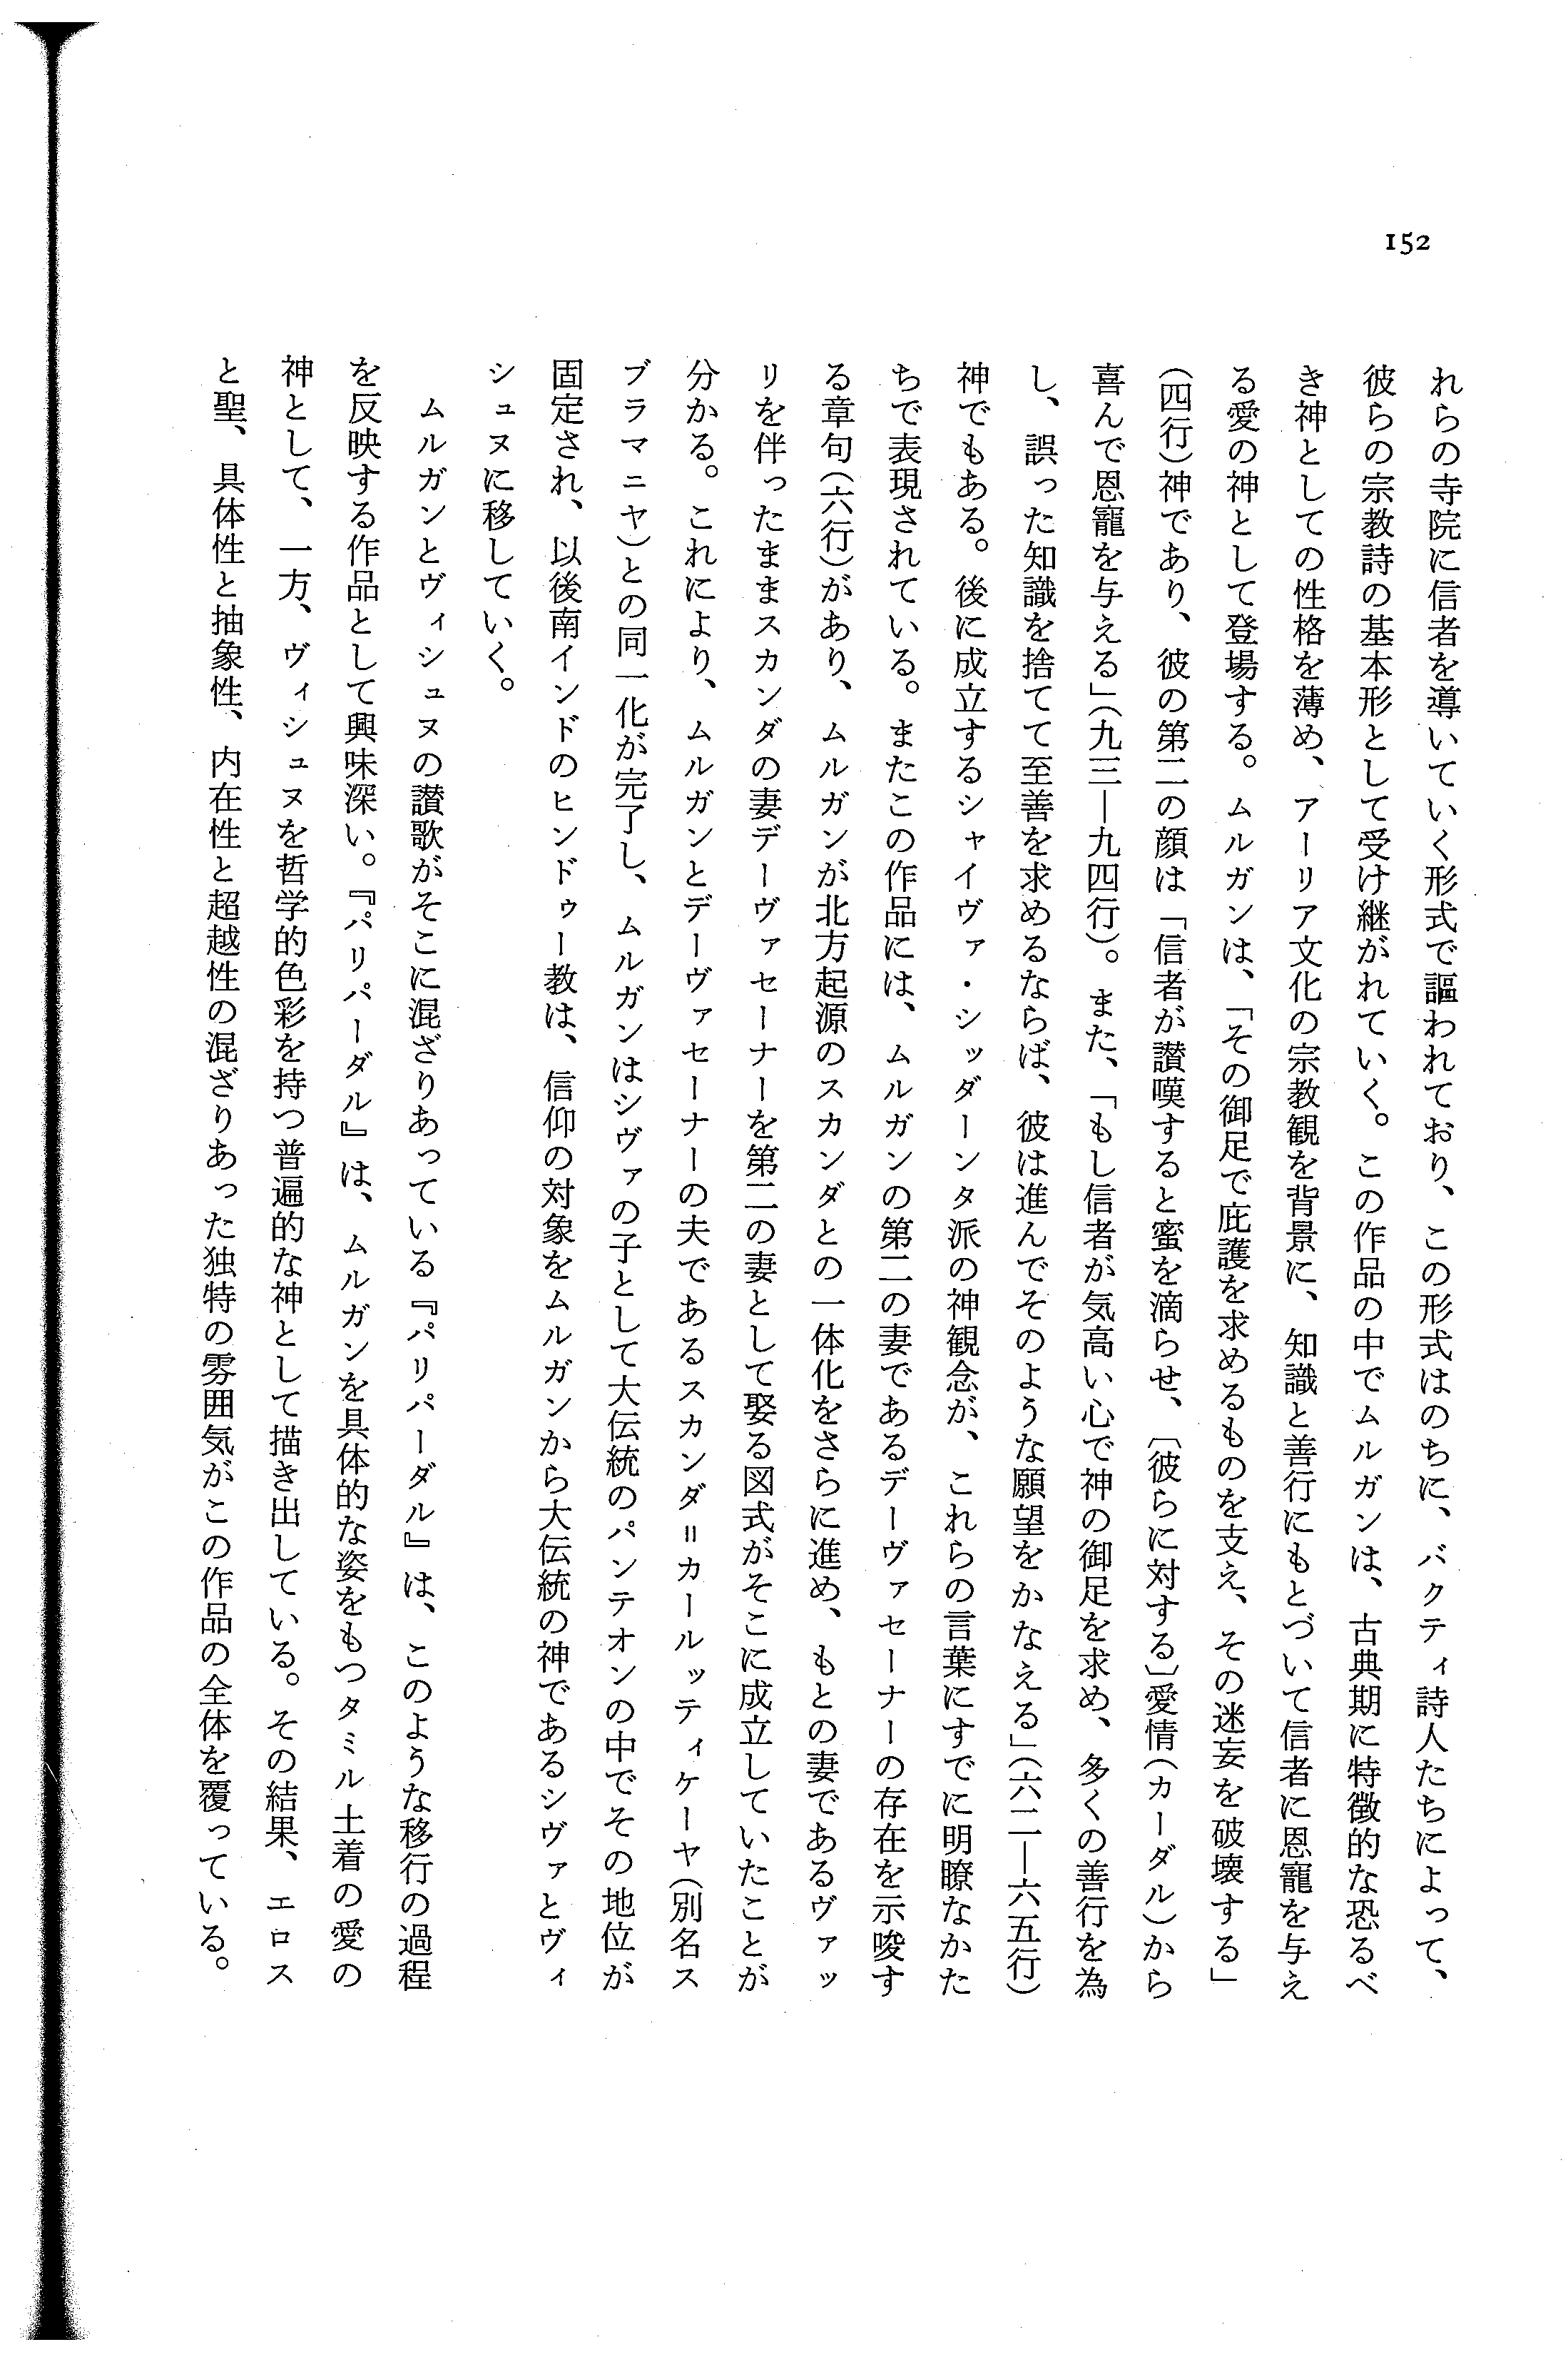 152
れらの寺院に信者を導いていく形式で謳われており、この形式はのちに、バクティ詩人たちによって、
彼らの宗教詩の基本形として受け継がれていく。この作品の中でムルガンは、古典期に特徴的な恐るべ
き神としての性格を薄め、アーリア文化の宗教観を背景に、知識と善行にもとづいて信者に恩寵を与え
る愛の神として登場する。ムルガンは、「その御足で庇護を求めるものを支え、その迷妄を破壊する」
(四行)神であり、彼の第二の顔は「信者が讃嘆すると蜜を滴らせ、〔彼らに対する〕愛情(カーダル)から
喜んで恩寵を与える」(九三―九四行)。また、「もし信者が気高い心で神の御足を求め、多くの善行を為
し、誤った知識を捨てて至善を求めるならば、彼は進んでそのような願望をかなえる」(六二―六五行)
神でもある。後に成立するシャイヴァ・シッダーンタ派の神観念が、これらの言葉にすでに明瞭なかた
ちで表現されている。またこの作品には、ムルガンの第二の妻であるデーヴァセーナーの存在を示唆す
る章句(六行)があり、ムルガンが北方起源のスカンダとの一体化をさらに進め、もとの妻であるヴァッ
リを伴ったままスカンダの妻デーヴァセーナーを第二の妻として娶る図式がそこに成立していたことが
分かる。これにより、ムルガンとデーヴァセーナーの夫であるスカンダ=カールッティケーヤ(別名ス
ブラマニヤ)との同一化が完了し、ムルガンはシヴァの子として大伝統のパンテオンの中でその地位が
固定され、以後南インドのヒンドゥー教は、信仰の対象をムルガンから大伝統の神であるシヴァとヴィ
シュヌに移していく。
ムルガンとヴィシュヌの讃歌がそこに混ざりあっている『パリパーダル』は、このような移行の過程
を反映する作品として興味深い。『パリパーダル』は、ムルガンを具体的な姿をもつタミル土着の愛の
神として、一方、ヴィシュヌを哲学的色彩を持つ普遍的な神として描き出している。その結果、エロス
と聖、具体性と抽象性、内在性と超越性の混ざりあった独特の雰囲気がこの作品の全体を覆っている。